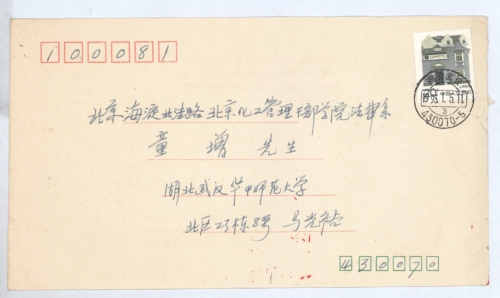 100081
北京海淀北洼路北京化工管理干部学院法律系
童增先生
湖北武汉华中师范大学
北区23栋8号 马
430070
430070-5